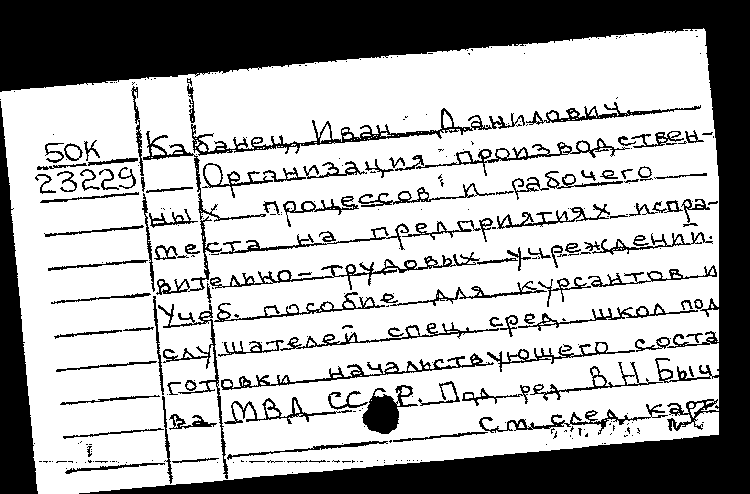 50К
23229
Кабанец, Иван Данилович.
Организация производствен-
ных процессов и рабочего
места на предприятиях испра-
вительно-трудовых учреждений.
Учеб. пособие для курсантов и
слушателей спец. сред. школ под
готовки начальствующего соста
ва МВД СССР. Под ред В.Н.Быч.
См. след. карт.